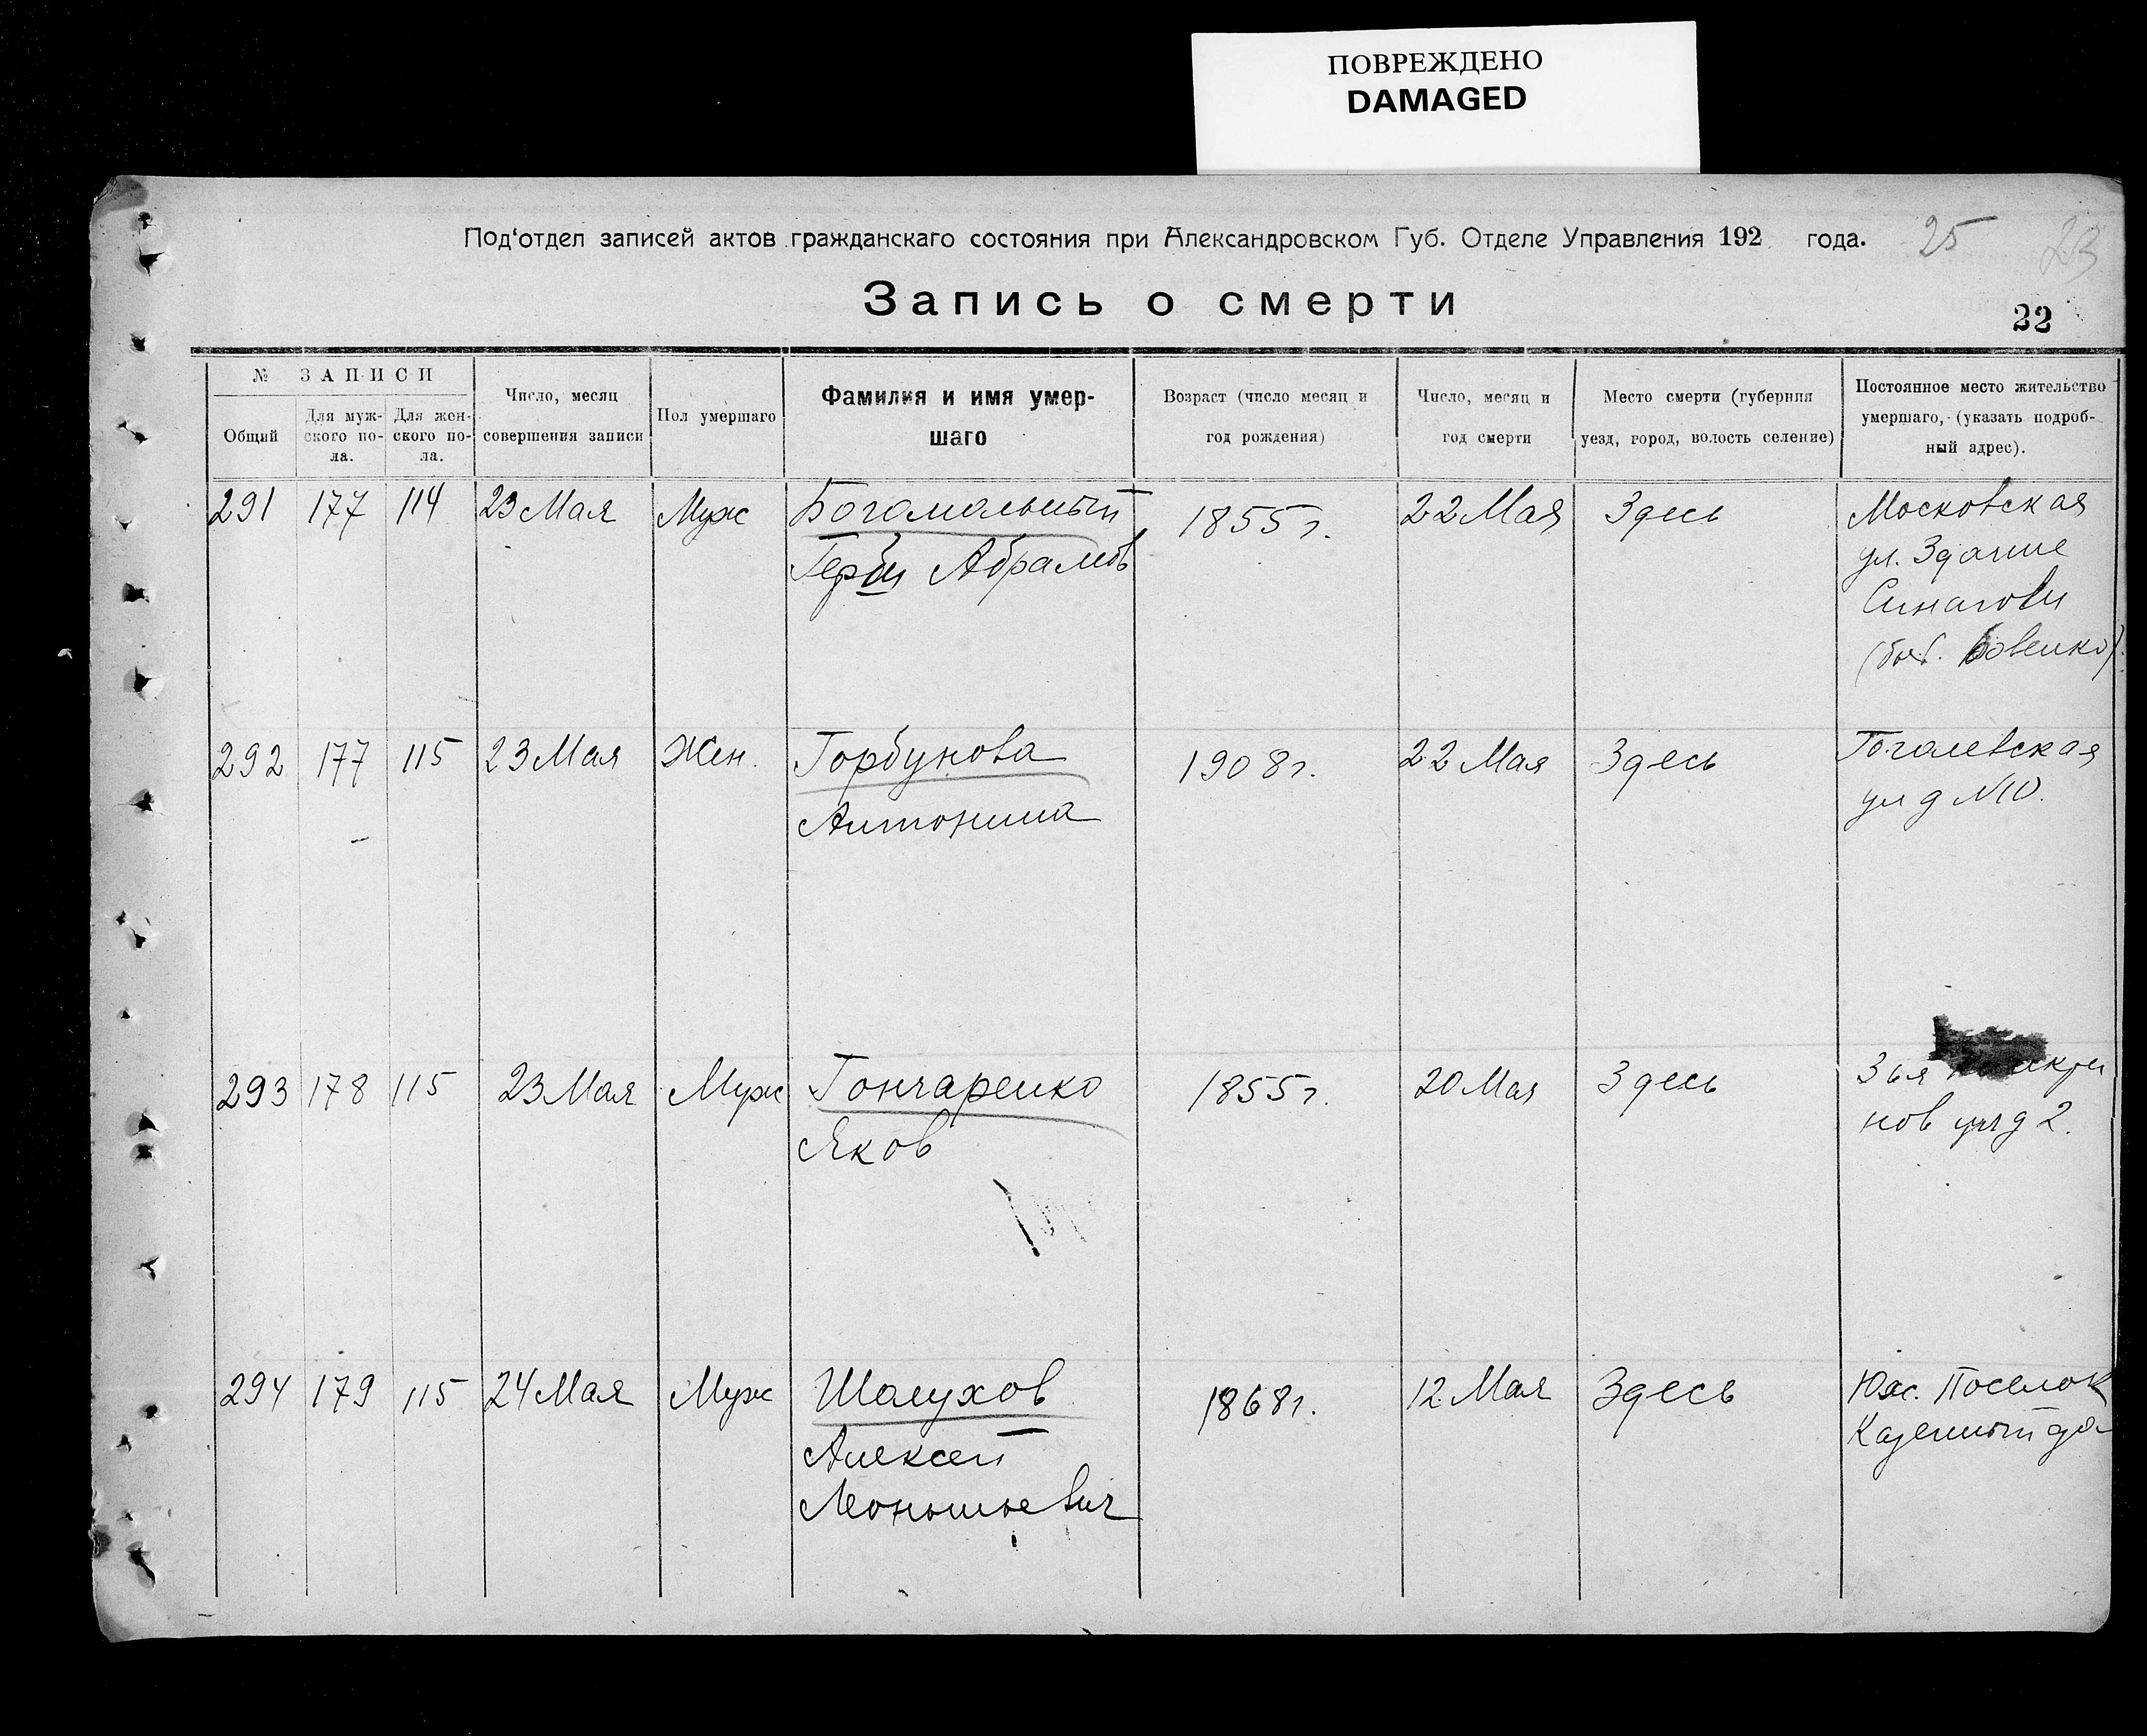 ПОВРЕЖДЕНО
DAMAGED
Под'отдел записей актов гражданскаго состояния при Александровском Губ. Отделе Управления 192 года.
25 23
Запись о смерти
22
№ ЗАПИСИ
Общий
Для муж-
ского по-
ла.
Для жен-
ского по-
ла.
Число, месяц
совершения записи
Пол умершаго
Фамилия и имя умер-
шаго
Возраст (число месяц и
год рождения)
Число, месяц и
год смерти
Место смерти (губерния
уезд, город, волость селение)
Постоянное место жительство
умершаго, (указать подроб-
ный адрес).
291 177 114 23 Мая Муж Богомольный 1855 г. 22 Мая Здесь Московская
Абрамов ул. Здание
Синагоги
(быв.
292 177 115 23 Мая Жен. Горбунова 1908 г. 22 Мая Здесь Гоголевская
Антонина ул д №10.
293 178 115 23 Мая Муж Гончаренко 1855 г. 20 Мая Здесь 3 ья
Яков нов ул д 2.
294 179 115 24 Мая Муж Шалухов 1868 г. 12 Мая Здесь Юж. Поселок
Алексей Казенный до
Леонтьевич